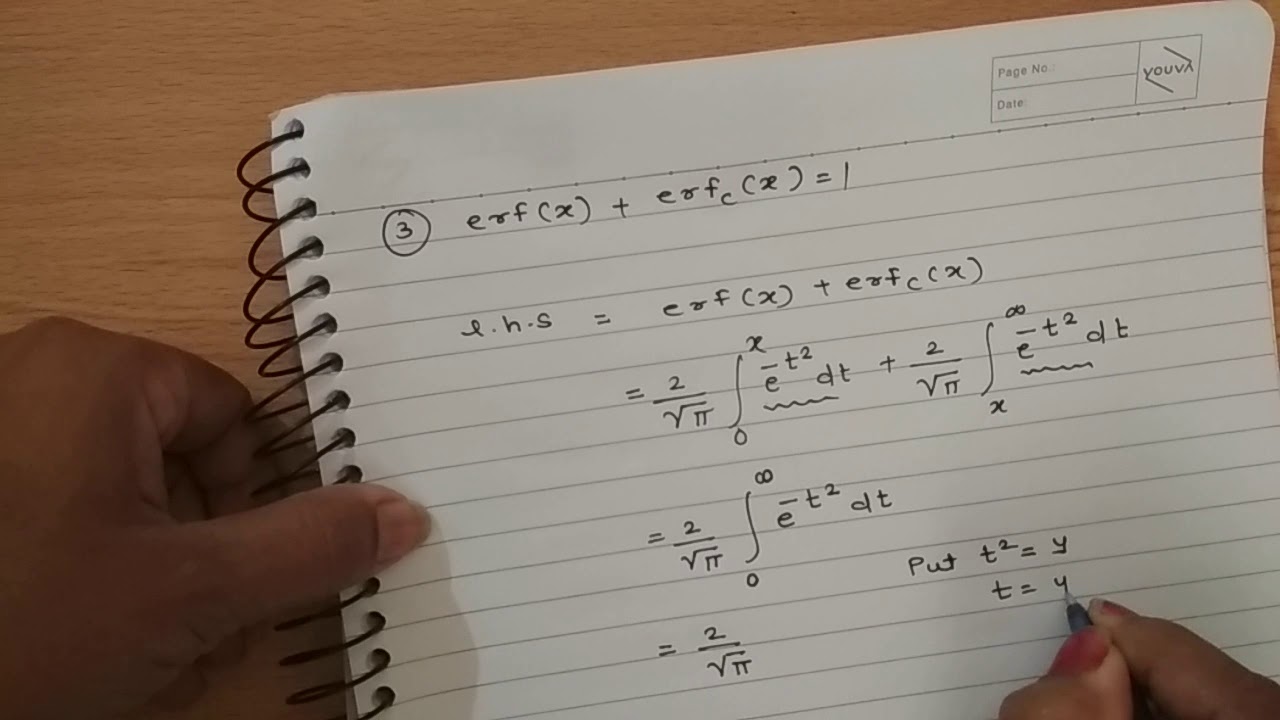 Page No.:
YOUVA
Date:
③ erf(x) + erf_c(x) = 1
l.h.s = erf(x) + erf_c(x)
= 2/√π ∫₀ˣ e^-t² dt + 2/√π ∫ₓ^∞ e^-t² dt
= 2/√π ∫₀^∞ e^-t² dt
Put t² = y
t = y
= 2/√π